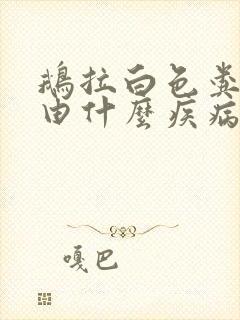 鵝拉白色糞
由什麼疾病
嘎巴